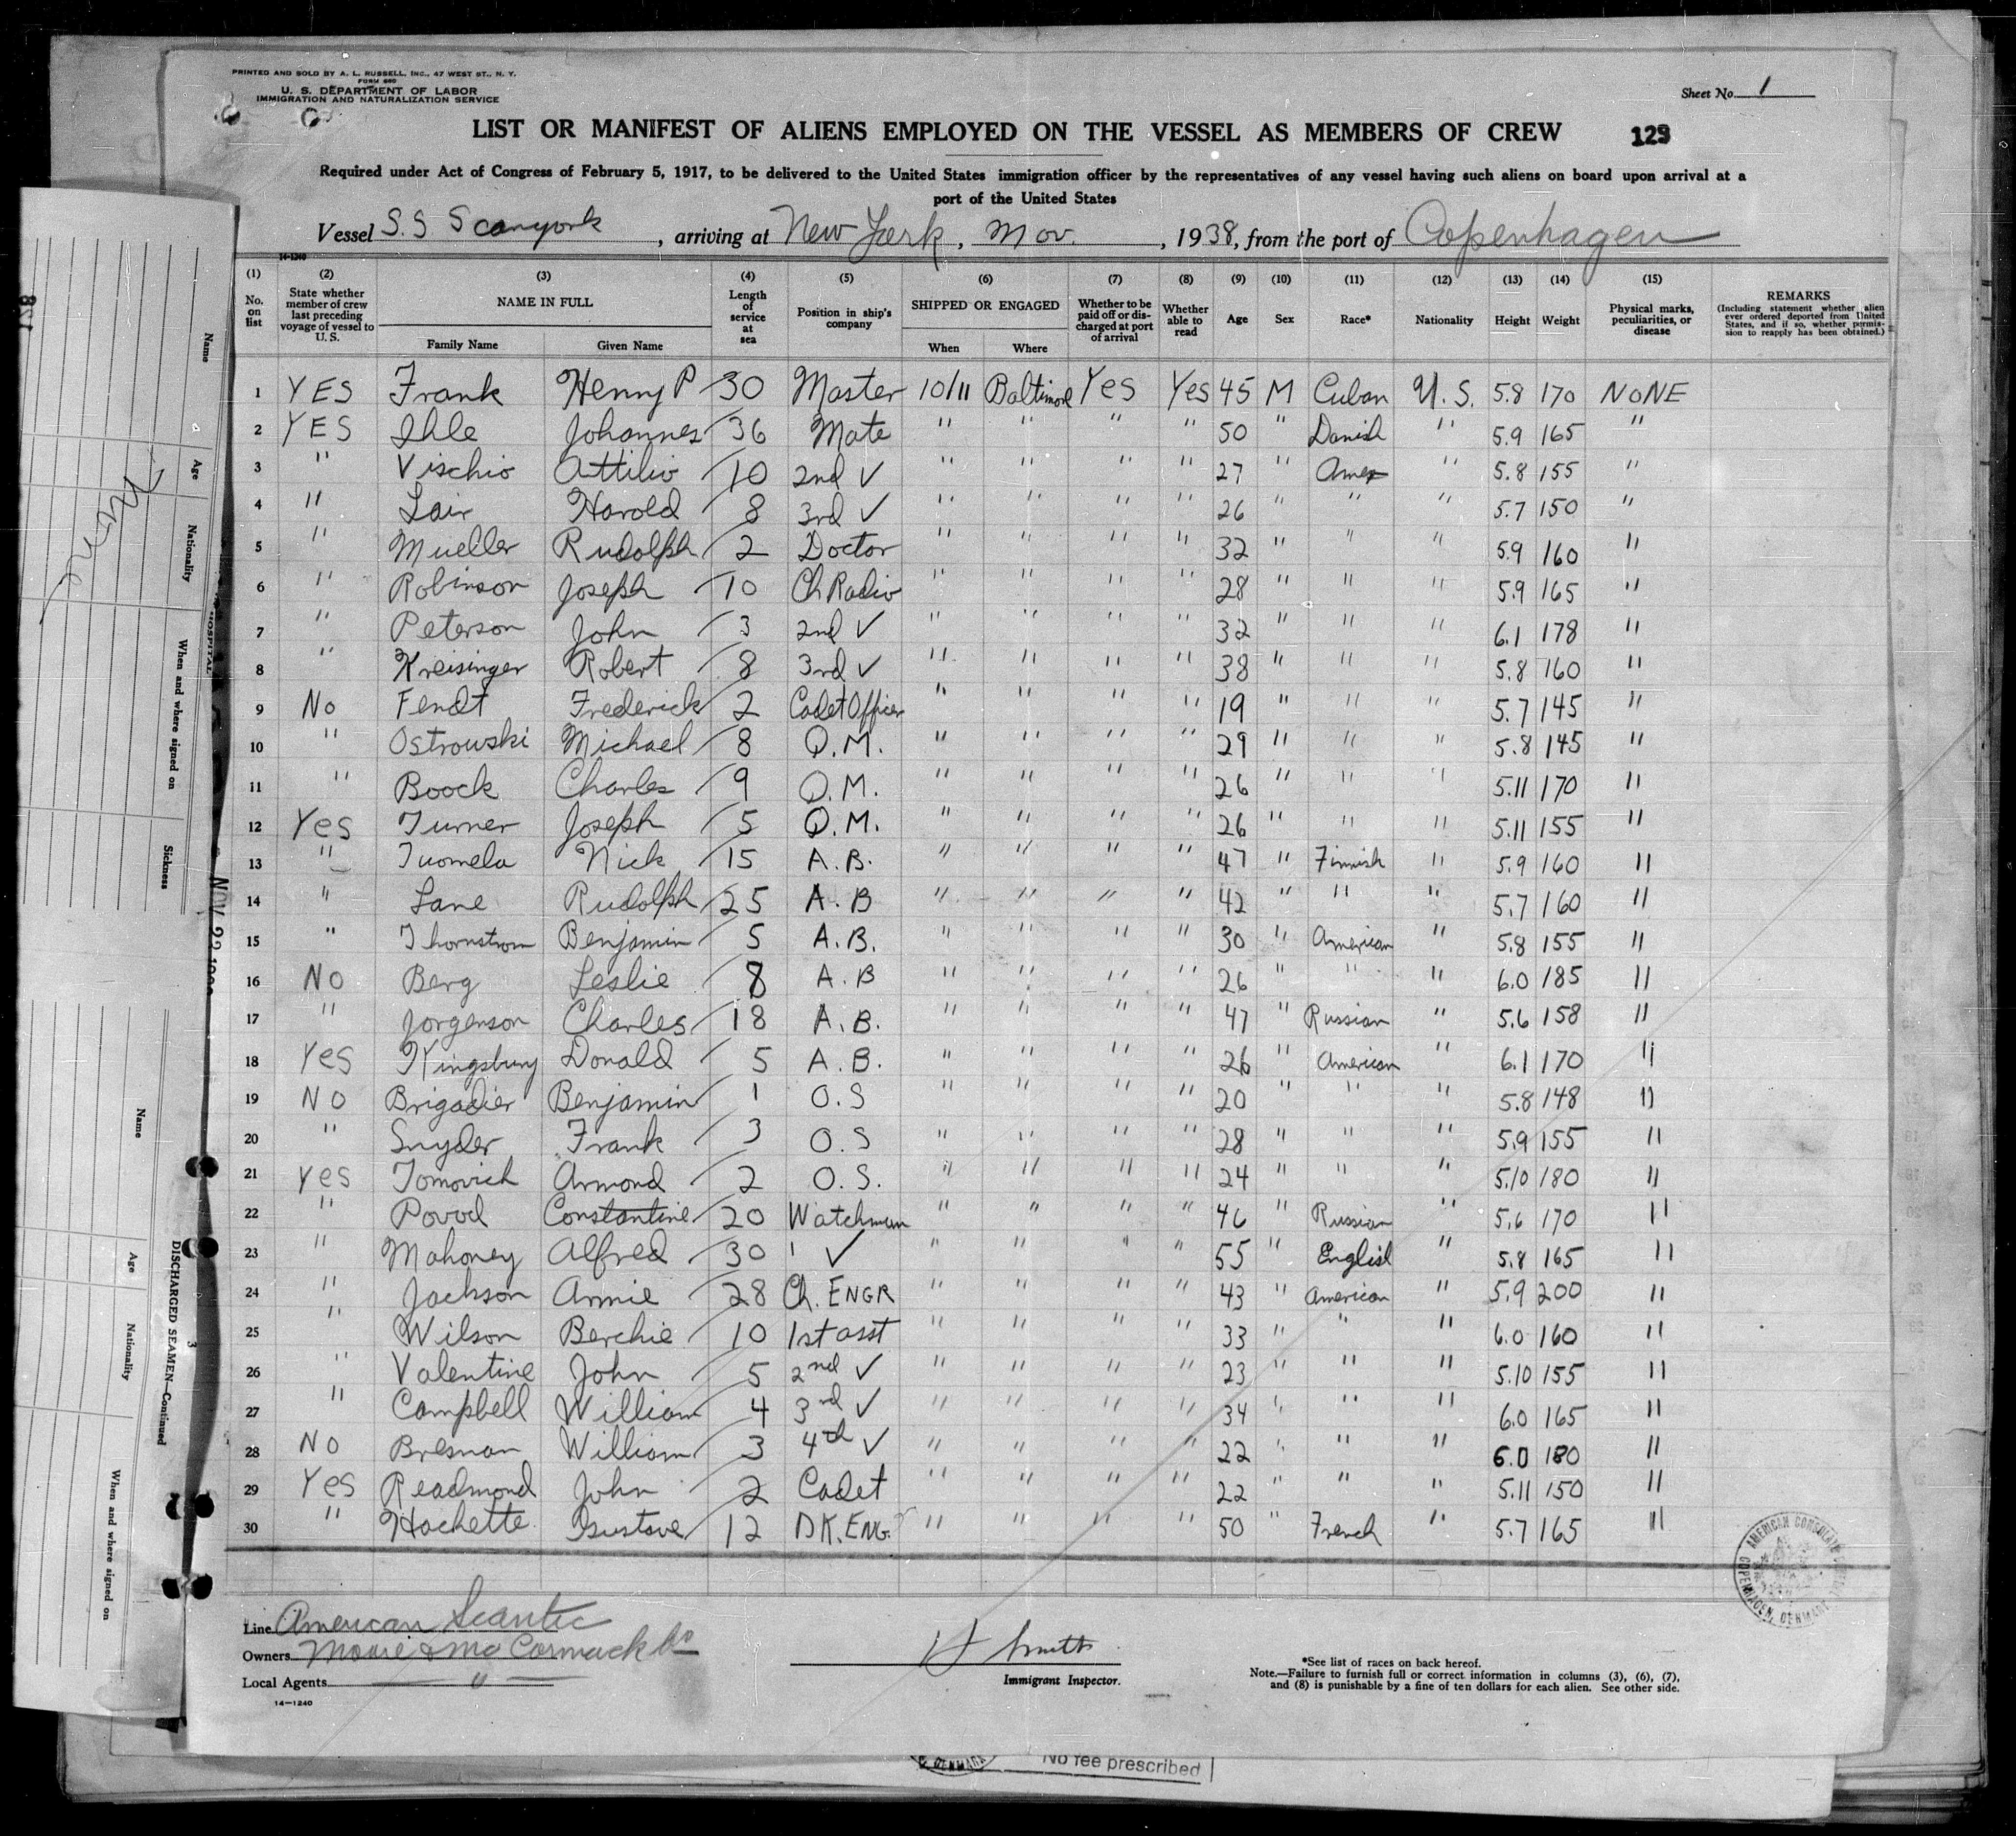 PRINTED AND SOLD BY A. L. RUSSELL, INC., 47 WEST ST., N. Y.
FORM 680
U. S. DEPARTMENT OF LABOR
IMMIGRATION AND NATURALIZATION SERVICE
Sheet No. 1
LIST OR MANIFEST OF ALIENS EMPLOYED ON THE VESSEL AS MEMBERS OF CREW 129
Required under Act of Congress of February 5, 1917, to be delivered to the United States immigration officer by the representatives of any vessel having such aliens on board upon arrival at a
port of the United States
Vessel S.S Scanyork, arriving at New York, Nov., 1938, from the port of Copenhagen
14-1240
(1) (2) (3) (4) (5) (6) (7) (8) (9) (10) (11) (12) (13) (14) (15)
No. on list State whether member of crew last preceding voyage of vessel to U. S. NAME IN FULL Family Name Given Name Length of service at sea Position in ship's company SHIPPED OR ENGAGED When Where Whether to be paid off or discharged at port of arrival Whether able to read Age Sex Race* Nationality Height Weight Physical marks, peculiarities, or disease REMARKS (Including statement whether alien ever ordered deported from United States, and if so, whether permission to reapply has been obtained.)
1 YES Frank Henry P 30 Master 10/11 Baltimore Yes Yes 45 M Cuban U.S. 5.8 170 NONE
2 YES Ihle Johannes 36 Mate " " " " 50 " Danish " 5.9 165 "
3 " Vischio Attilio 10 2nd ✓ " " " " 27 " Amer " 5.8 155 "
4 " Lair Harold 8 3rd ✓ " " " " 26 " " " 5.7 150 "
5 " Mueller Rudolph 2 Doctor " " " " 32 " " " 5.9 160 "
6 " Robinson Joseph 10 Ch Radio " " " " 28 " " " 5.9 165 "
7 " Peterson John 3 2nd ✓ " " " " 32 " " " 6.1 178 "
8 " Kreisinger Robert 8 3rd ✓ " " " " 38 " " " 5.8 160 "
9 No Fendt Frederick 2 Cadet Officer " " " " 19 " " " 5.7 145 "
10 " Ostrowski Michael 8 Q.M. " " " " 29 " " " 5.8 145 "
11 " Boock Charles 9 Q.M. " " " " 26 " " " 5.11 170 "
12 Yes Turner Joseph 5 Q.M. " " " " 26 " " " 5.11 155 "
13 " Tuomela Nick 15 A.B. " " " " 47 " Finnish " 5.9 160 "
14 " Lane Rudolph 25 A.B " " " " 42 " " " 5.7 160 "
15 " Thornstrom Benjamin 5 A.B. " " " " 30 " American " 5.8 155 "
16 No Berg Leslie 8 A.B " " " " 26 " " " 6.0 185 "
17 " Jorgenson Charles 18 A.B. " " " " 47 " Russian " 5.6 158 "
18 Yes Kingsbury Donald 5 A.B. " " " " 26 " American " 6.1 170 "
19 No Brigadier Benjamin 1 O.S " " " " 20 " " " 5.8 148 "
20 " Snyder Frank 3 O.S " " " " 28 " " " 5.9 155 "
21 Yes Tomovich Armond 2 O.S. " " " " 24 " " " 5.10 180 "
22 " Povod Constantine 20 Watchman " " " " 46 " Russian " 5.6 170 "
23 " Mahoney Alfred 30 ' ✓ " " " " 55 " English " 5.8 165 "
24 " Jackson Armie 28 Ch. ENGR " " " " 43 " American " 5.9 200 "
25 " Wilson Berchie 10 1st asst " " " " 33 " " " 6.0 160 "
26 " Valentine John 5 2nd ✓ " " " " 23 " " " 5.10 155 "
27 " Campbell William 4 3rd ✓ " " " " 34 " " " 6.0 165 "
28 No Bresnan William 3 4th ✓ " " " " 22 " " " 6.0 180 "
29 Yes Readmond John 2 Cadet " " " " 22 " " " 5.11 150 "
30 " Hachette Gustave 12 DK. ENG. " " " " 50 " French " 5.7 165 "
Line American Scantic
Owners Moore & McCormack Co
Local Agents "
14—1240
H Smith
Immigrant Inspector.
*See list of races on back hereof.
Note.—Failure to furnish full or correct information in columns (3), (6), (7),
and (8) is punishable by a fine of ten dollars for each alien. See other side.
AMERICAN CONSULATE
COPENHAGEN, DENMARK
No fee prescribed
Name
Age
Nationality
When and where signed on
Sickness
None
HOSPITAL
NOV 23
Name
Age
Nationality
When and where signed on
DISCHARGED SEAMEN—Continued
3